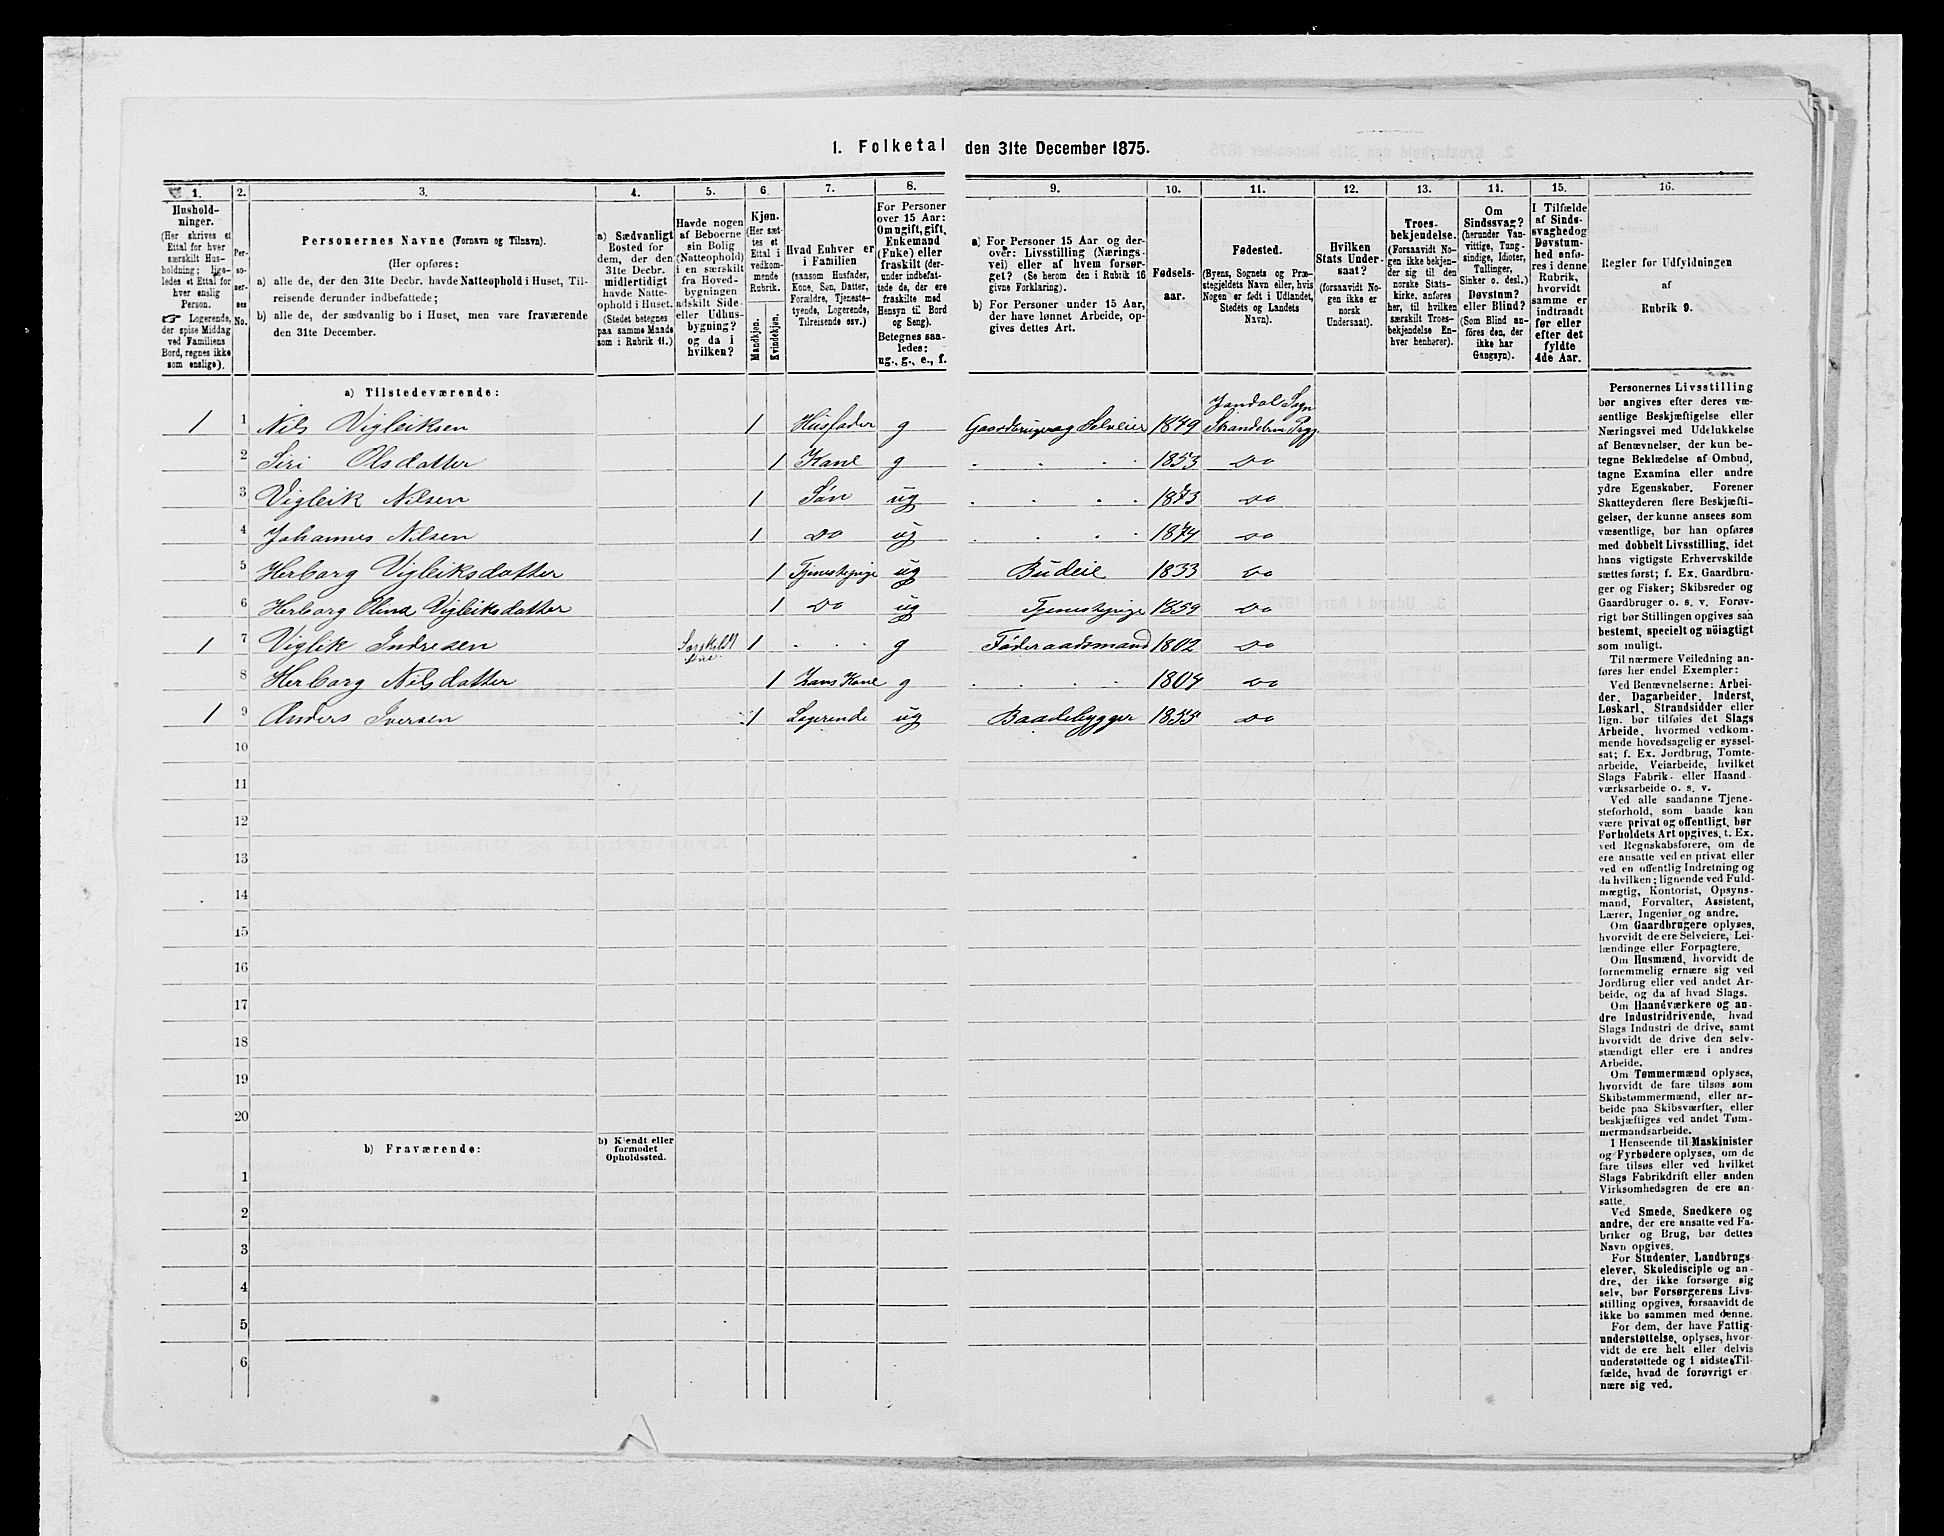 1. Folketal den 31te December 1875.
1. 2. 3. 4. 5. 6. 7. 8. 9. 10. 11. 12. 13. 14. 15. 16.
Hushold-
ninger.
(Her skrives et
Ettal for hver
særskilt Hus-
holdning; lige-
ledes et Ettal for
hver enslig
Person.
☞ Logerende,
der spise Middag
ved Familiens
Bord, regnes ikke
som enslige).
Per-
so-
ner-
nes
No.
Personernes Navne (Fornavn og Tilnavn).
(Her opføres:
a) alle de, der den 31te Decbr. havde Natteophold i Huset, Til-
reisende derunder indbefattede;
b) alle de, der sædvanlig bo i Huset, men vare fraværende
den 31te December.
a) Sædvanligt
Bosted for
dem, der den
31te Decbr.
midlertidigt
havde Natte-
ophold i Huset.
(Stedet betegnes
paa samme Maade
som i Rubrik 11.)
Havde nogen
af Beboerne
sin Bolig
(Natteophold)
i en særskilt
fra Hoved-
bygningen
adskilt Side-
eller Udhus-
bygning?
og da i
hvilken?
Kjøn.
(Her sæt-
tes et
Ettal i
vedkom-
mende
Rubrik.
Mandkjøn.
Kvindekjøn.
Hvad Enhver er
i Familien
(saasom Husfader,
Kone, Søn, Datter,
Forældre, Tjeneste-
tyende, Logerende,
Tilreisende osv.)
For Personer
over 15 Aar:
Om ugift, gift,
Enkemand
(Enke) eller
fraskilt (der-
under indbefat-
tede de, der ere
fraskilte med
Hensyn til Bord
og Seng).
Betegnes saa-
ledes:
ug., g., e., f.
a) For Personer 15 Aar og der-
over: Livsstilling (Nærings-
vei) eller af hvem forsør-
get? (Se herom den i Rubrik 16
givne Forklaring).
b) For Personer under 15 Aar,
der have lønnet Arbeide, op-
gives dettes Art.
Fødsels-
aar.
Fødested.
(Byens, Sognets og Præ-
stegjeldets Navn eller, hvis
Nogen er født i Udlandet,
Stedets og Landets
Navn).
Hvilken
Stats Under-
saat?
(forsaavidt No-
gen ikke er
norsk
Undersaat).
Troes-
bekjendelse.
(Forsaavidt No-
gen ikke bekjen-
der sig til den
norske Stats-
kirke, anføres
her, til hvilken
særskilt Troes-
bekjendelse En-
hver henhører).
Om
Sindssvag?
(herunder Van-
vittige, Tung-
sindige, Idioter,
Tullinger,
Sinker o. desl.)
Døvstum?
eller Blind?
(Som Blind an-
føres den, der
ikke har
Gangsyn).
I Tilfælde
af Sinds-
svaghed og
Døvstum-
hed anfø-
res i denne
Rubrik,
hvorvidt
samme er
indtraadt
før eller
efter det
fyldte
4de Aar.
Regler for Udfyldningen
af
Rubrik 9.
a) Tilstedeværende:
1 1 Nils Vigleiksen 1 Husfader g Gaardbruger og Selveier 1849 Jondal Sogn Strandebrm Prgj.
2 Siri Olsdatter 1 Kone g 1853 do
3 Vigleik Nilsen 1 Søn ug 1873 do
4 Johannes Nilsen 1 do ug 1874 do
5 Herborg Vigleiksdatter 1 Tjenestepige ug Budeie 1833 do
6 Herborg Olina Vigleiksdatter 1 do ug Tjenestepige 1859 do
1 7 Viglik Indresen 1 g Føderaadsmand 1802 do
8 Herborg Nilsdatter 1 hans Kone g 1804 do
1 9 Anders Iversen 1 Logerende ug Baadebygger 1855 do
10
11
12
13
14
15
16
17
18
19
20
b) Fraværende:
b) Kjendt eller
formodet
Opholdssted.
1
2
3
4
5
6
Personernes Livsstilling
bør angives efter deres væ-
sentlige Beskjæftigelse eller
Næringsvei med Udelukkelse
af Benævnelser, der kun be-
tegne Beklædelse af Ombud,
tagne Examina eller andre
ydre Egenskaber. Forener
Skatteyderen flere Beskjæfti-
gelser, der kunne ansees som
væsentlige, bør han opføres
med dobbelt Livsstilling, idet
hans vigtigste Erhvervskilde
sættes først; f. Ex. Gaardbru-
ger og Fisker; Skibsreder og
Gaardbruger o. s. v. Forøv-
rigt bør Stillingen opgives saa
bestemt, specielt og nöiagtigt
som muligt.
Til nærmere Veiledning an-
føres her endel Exempler:
Ved Benævnelserne: Arbei-
der, Dagarbeider, Inderst,
Løskarl, Strandsidder eller
lign. bør tilføies det Slags
Arbeide, hvormed vedkom-
mende hovedsagelig er syssel-
sat; f. Ex. Jordbrug, Tomte-
arbeide, Veiarbeide, hvilket
Slags Fabrik- eller Haand-
værksarbeide o. s. v.
Ved alle saadanne Tjene-
steforhold, som baade kan
være privat og offentligt, bør
Forholdets Art opgives, t. Ex.
ved Regnskabsførere, om de
ere ansatte ved en privat eller
ved en offentlig Indretning og
da hvilken; lignende ved Fuld-
mægtig, Kontorist, Opsyns-
mand, Forvalter, Assistent,
Lærer, Ingeniør og andre.
Om Gaardbrugere oplyses,
hvorvidt de ere Selveiere, Lei-
lændinge eller Forpagtere.
Om Husmænd, hvorvidt de
fornemmelig ernære sig ved
Jordbrug eller ved andet Ar-
beide, og da af hvad Slags.
Om Haandværkere og an-
dre Industridrivende, hvad
Slags Industri de drive, samt
hvorvidt de drive den selv-
stændigt eller ere i andres
Arbeide.
Om Tømmermænd oplyses,
hvorvidt de fare tilsøs som
Skibstømmermænd, eller ar-
beide paa Skibsværfter, eller
beskjæftiges ved andet Tøm-
mermandsarbeide.
I Henseende til Maskinister
og Fyrbødere oplyses, om de
fare tilsøs eller ved hvilket
Slags Fabrikdrift eller anden
Virksomhedsgren de ere an-
satte.
Ved Smede, Snedkere og
andre, der ere ansatte ved Fa-
briker og Brug, bør dettes
Navn opgives.
For Studenter, Landbrugs-
elever, Skoledisciple og an-
dre, der ikke forsørge sig
selv, bør Forsørgerens Livs-
stilling opgives, forsaavidt de
ikke bo sammen med denne.
For dem, der have Fattig-
understøttelse, oplyses, hvor-
vidt de ere helt eller delvis
understøttede og i sidste Til-
fælde, hvad de forøvrigt er-
nære sig ved.